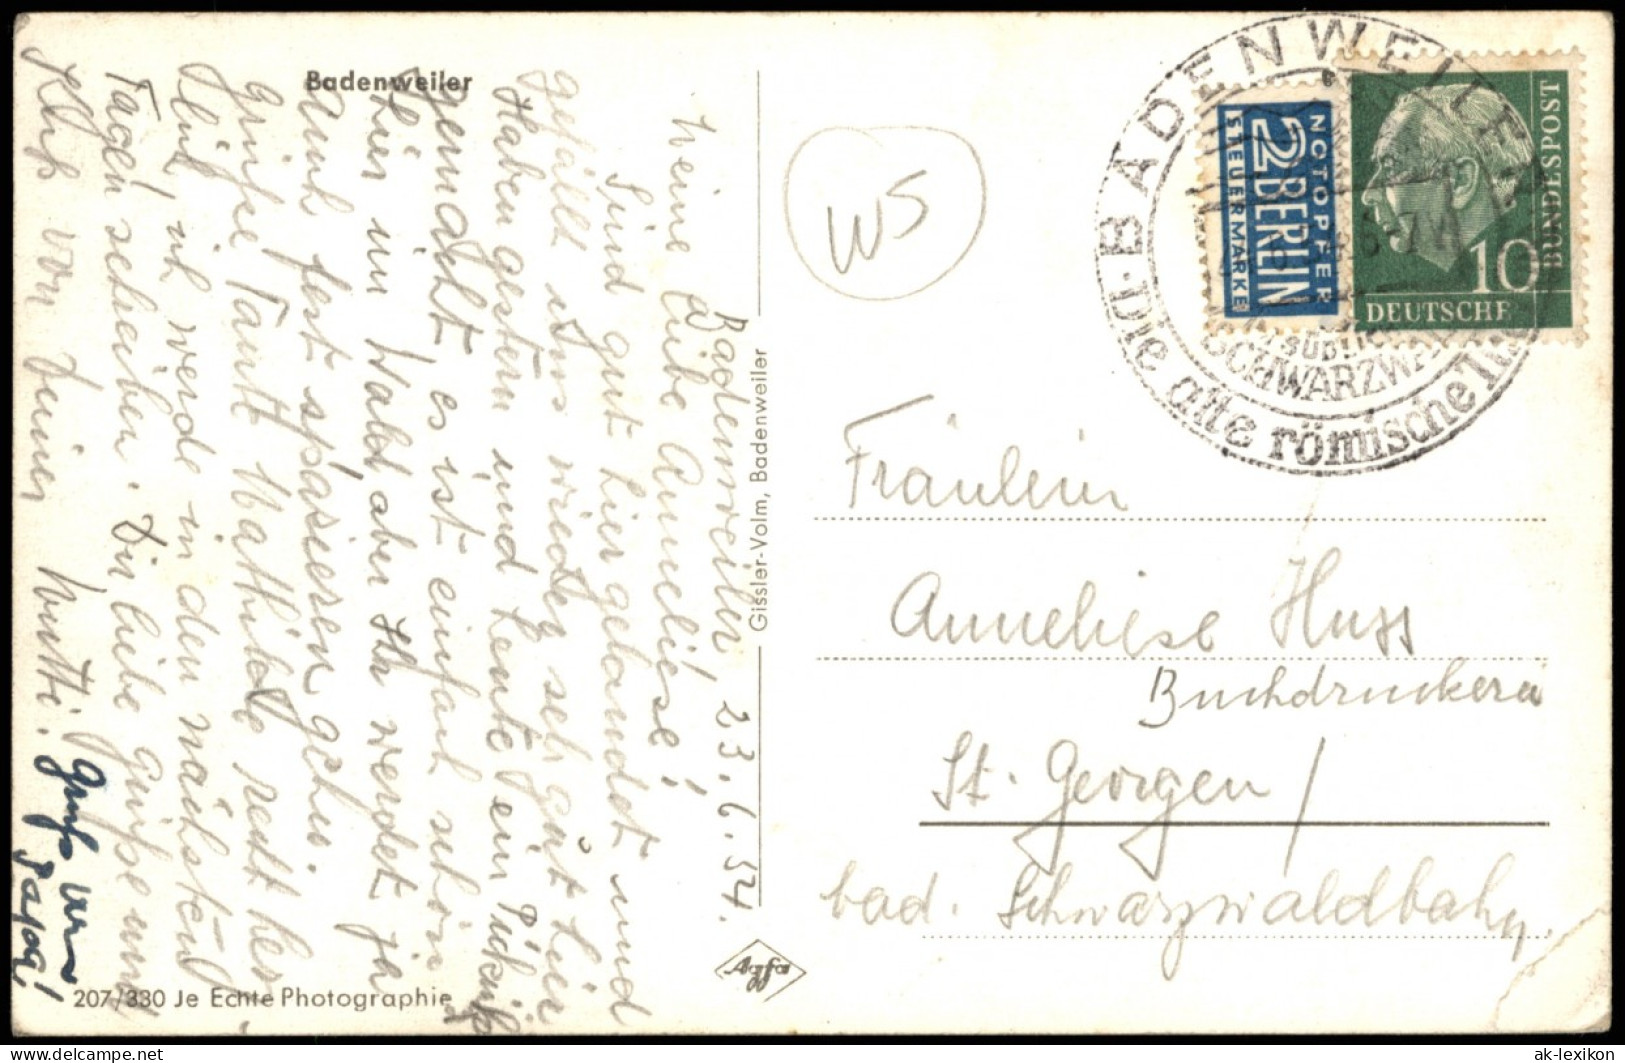 Badenweiler
Badenweiler, 23.6.54.
Meine liebe Anneliese!
Sind gut hier gelandet und
gefällt uns wieder sehr gut hier
Haben gestern und heute ein Picknick
gemacht, es ist einfach schön
hier im Wald aber Ihr werdet ja
auch fest spazieren gehn.
Grüße Tante Mathilde recht herz
lich, ich werde in den nächsten
Tagen schreiben. Dir liebe Grüße und
Kuß von Deiner Mutti.
Gruß vom
Papa!
207/330 Je Echte Photographie
Gissler-Volm, Badenweiler
Agfa
WS
NOTOPFER
2 BERLIN
STEUERMARKE
BUNDESPOST
10
DEUTSCHE
BADENWEILER
SCHWARZWALD
Die alte römische
Fräulein
Anneliese Huss
Buchdruckerei
St. Georgen /
bad. Schwarzwaldbahn
ak-lexikon
delcampe.net